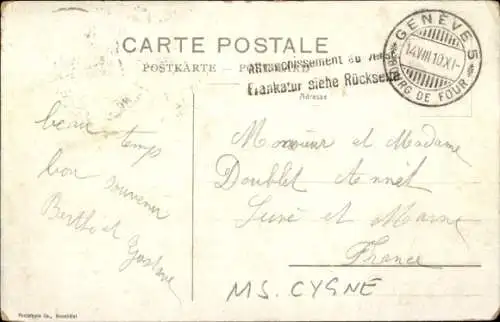 CARTE POSTALE
POSTKARTE – POSTCARD
Affranchissement au verso
Frankatur siehe Rückseite
Adresse
GENÈVE 5
14.VIII.10.XI-
BOURG DE FOUR
beau temps
bon souvenir
Berthe et Gustave
Monsieur et Madame
Doublet Annet
Seine et Marne
France
MS. CYGNE